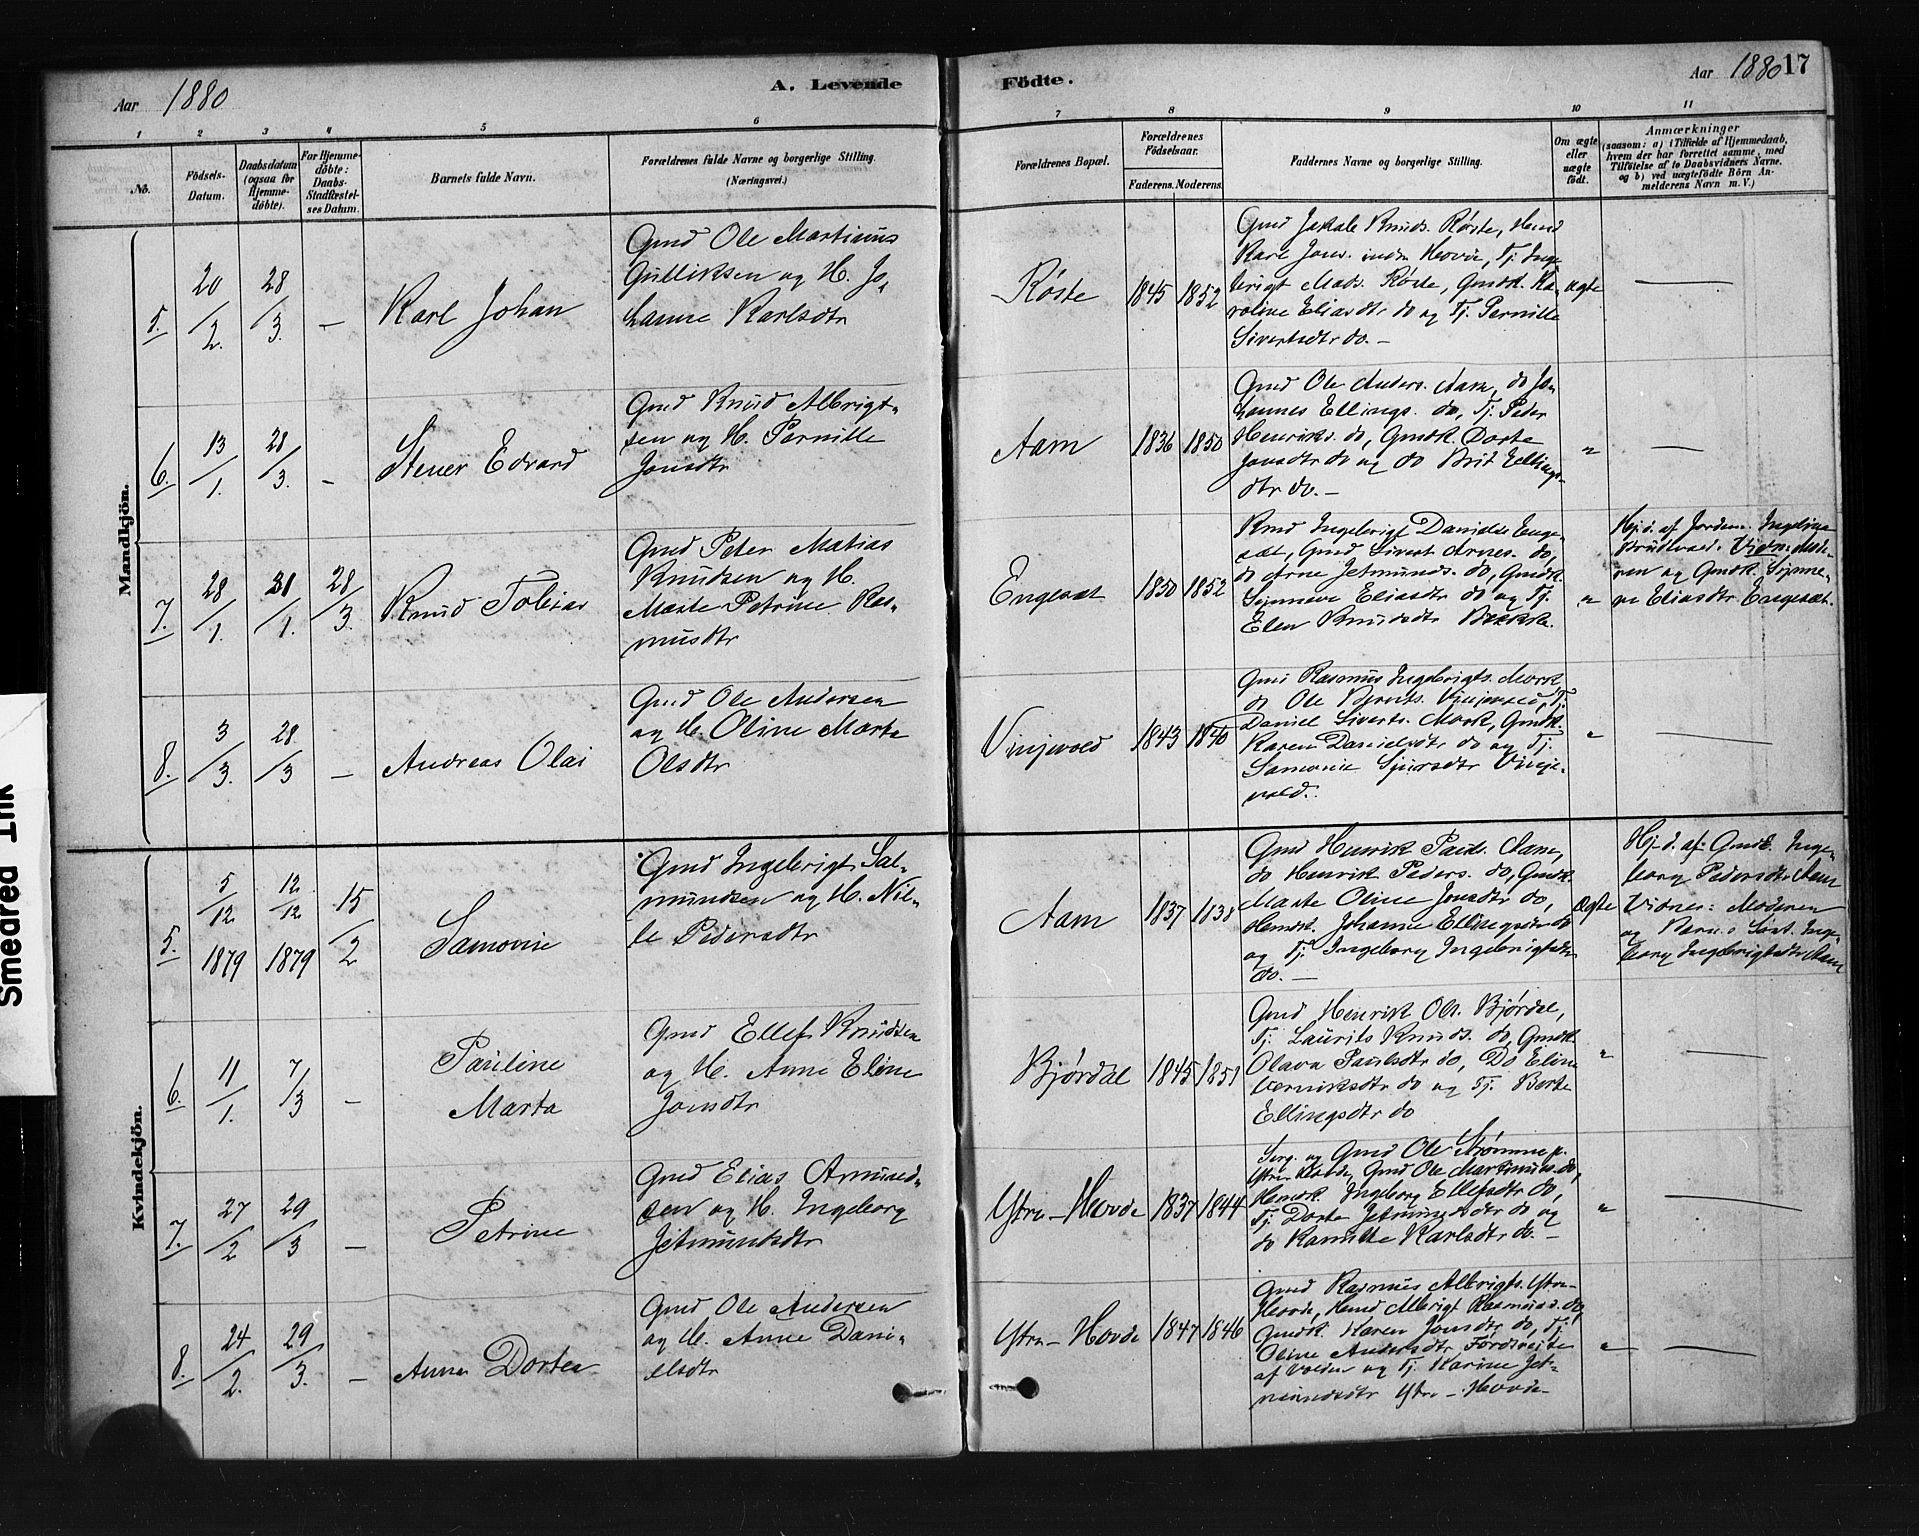 Aar 1880
A. Levende
Fødte.
Aar 1880 17
1 2 3 4 5 6 7 8 9 10 11
No.
Födsels-
Datum.
Daabsdatum
(ogsaa for
Hjemme-
døbte).
For Hjemme-
döbte:
Daabs-
Stadfæstel-
ses Datum.
Barnets fulde Navn.
Forældrenes fulde Navne og borgerlige Stilling.
(Næringsvei.)
Forældrenes Bopæl.
Forældrenes
Födselsaar.
Faderens. Moderens.
Faddernes Navne og borgerlige Stilling.
Om ægte
eller
uægte
födt.
Anmærkninger
(saasom: a) i Tilfælde af Hjemmedaab,
hvem der har forrettet samme, med
Tilföielse af to Daabsvidners Navne,
og b) ved uægtefödte Börn An-
melderens Navn m. V.)
Mandkjön.
5.
20/2.
28/3.
–
Karl Johan
Gmd Ole Martinus
Gulliksen og H. Jo-
hanne Karlsdtr
Røste
1845 1852
Gmd Jakob Knuds. Røste,
Karl Jons. indre Hovde, Tj. Inge-
brigt Mads. Røste, Gmdk. Ka-
roline Eliasdtr do og Tj. Pernille
Sivertsdtr do. –
ægte
—
6.
13/1.
28/3.
–
Stener Edvard
Gmd Knud Albrigt-
sen og H. Pernille
Jonsdtr
Aam
1836 1850
Gmd Ole Anders. Aam, do Jo-
hannes Ellings. do, Tj. Peder
Henriks. do, Gmdk. Dorte
Jonsdtr do og do Brit Ellings-
dtr do. –
"
—
7.
28/1.
31/1.
28/3.
Knud Tobias
Gmd Peter Matias
Knudsen og H.
Marte Petrine Ras-
musdtr
Engesæt
1850 1852
Kmd Ingebrigt Daniels. Enge-
sæt, Gmd Sivert Arnes. do,
do Arne Jetmunds. do, Gmdk.
Synneve Eliasdtr do og Tj.
Elen Knudsdtr Bakke.
"
Hj. d. af Jordm. Ingeline
Brudevold. Vidn: Mode-
ren og Gmdk. Synne-
ve Eliasdtr Engesæt.
8.
3/3.
28/3
–
Andreas Olai
Gmd Ole Andersen
og H. Oline Marta
Olsdtr
Vinjevold
1843 1840
Gmd Rasmus Ingebrigts. Mork
do Ole Bernts. Vinjevold, Tj.
Daniel Siverts. Mork, Gmdk.
Karen Danielsdtr do og Tj.
Samonie Sjursdtr Vinje-
vold.
"
—
Kvindekjön.
5.
5/12
1879
12/12
1879
15/2
Samonie
Gmd Ingebrigt Sal-
mundsen og H. Nil-
le Pedersdtr
Aam
1837 1838
Gmd Henrik Pauls. Aam,
do Henrik Peders. do, Gmdk.
Marte Oline Jonsdtr do,
Johanne Ellingsdtr do
og Tj. Ingeborg Ingebrigtsdtr
do. –
Ægte
Hj. d. af: Gmdk. Inge-
borg Pedersdtr Aam
Vidner: Moderen
og Barnets Søst. Inge-
borg Ingebrigtsdtr Aam
6.
11/1.
7/3
–
Pauline
Marta
Gmd Ellef Knudsen
og H. Anne Eline
Jonsdtr
Bjørdal
1845 1851
Gmd Henrik Ols. Bjørdal,
Tj. Laurits Knuds. do, Gmdk.
Olava Paulsdtr do, Do Eline
Henriksdtr do og Tj. Berte
Ellingsdtr do
"
—
7.
27/2
29/3
–
Petrine
Gmd Elias Amund-
sen og H. Ingeborg
Jetmundsdtr
Ytre-Hovde
1837 1844
Serg. og Gmd Ole Strømme p.
Ytre Hovde, Gmd Ole Martinus. do,
Ingeborg Ellefsdtr do,
Tj. Dorte Jetmundsdtr do og
do Karlsdtr do. –
"
—
8.
24/2.
29/3.
–
Anne Dortea
Gmd Ole Andersen
og H. Anne Dani-
elsdtr
Ytre-Hovde
1847 1846
Gmd Rasmus Albrigts. Ytre-
Hovde, Albrigt Rasmuss. do,
Gmdk. Karen Jonsdtr do, Tj.
Oline Andersdtr
af Volden og Tj. Karine Jet-
mundsdtr Ytre-Hovde
"
—
Smedred Ink